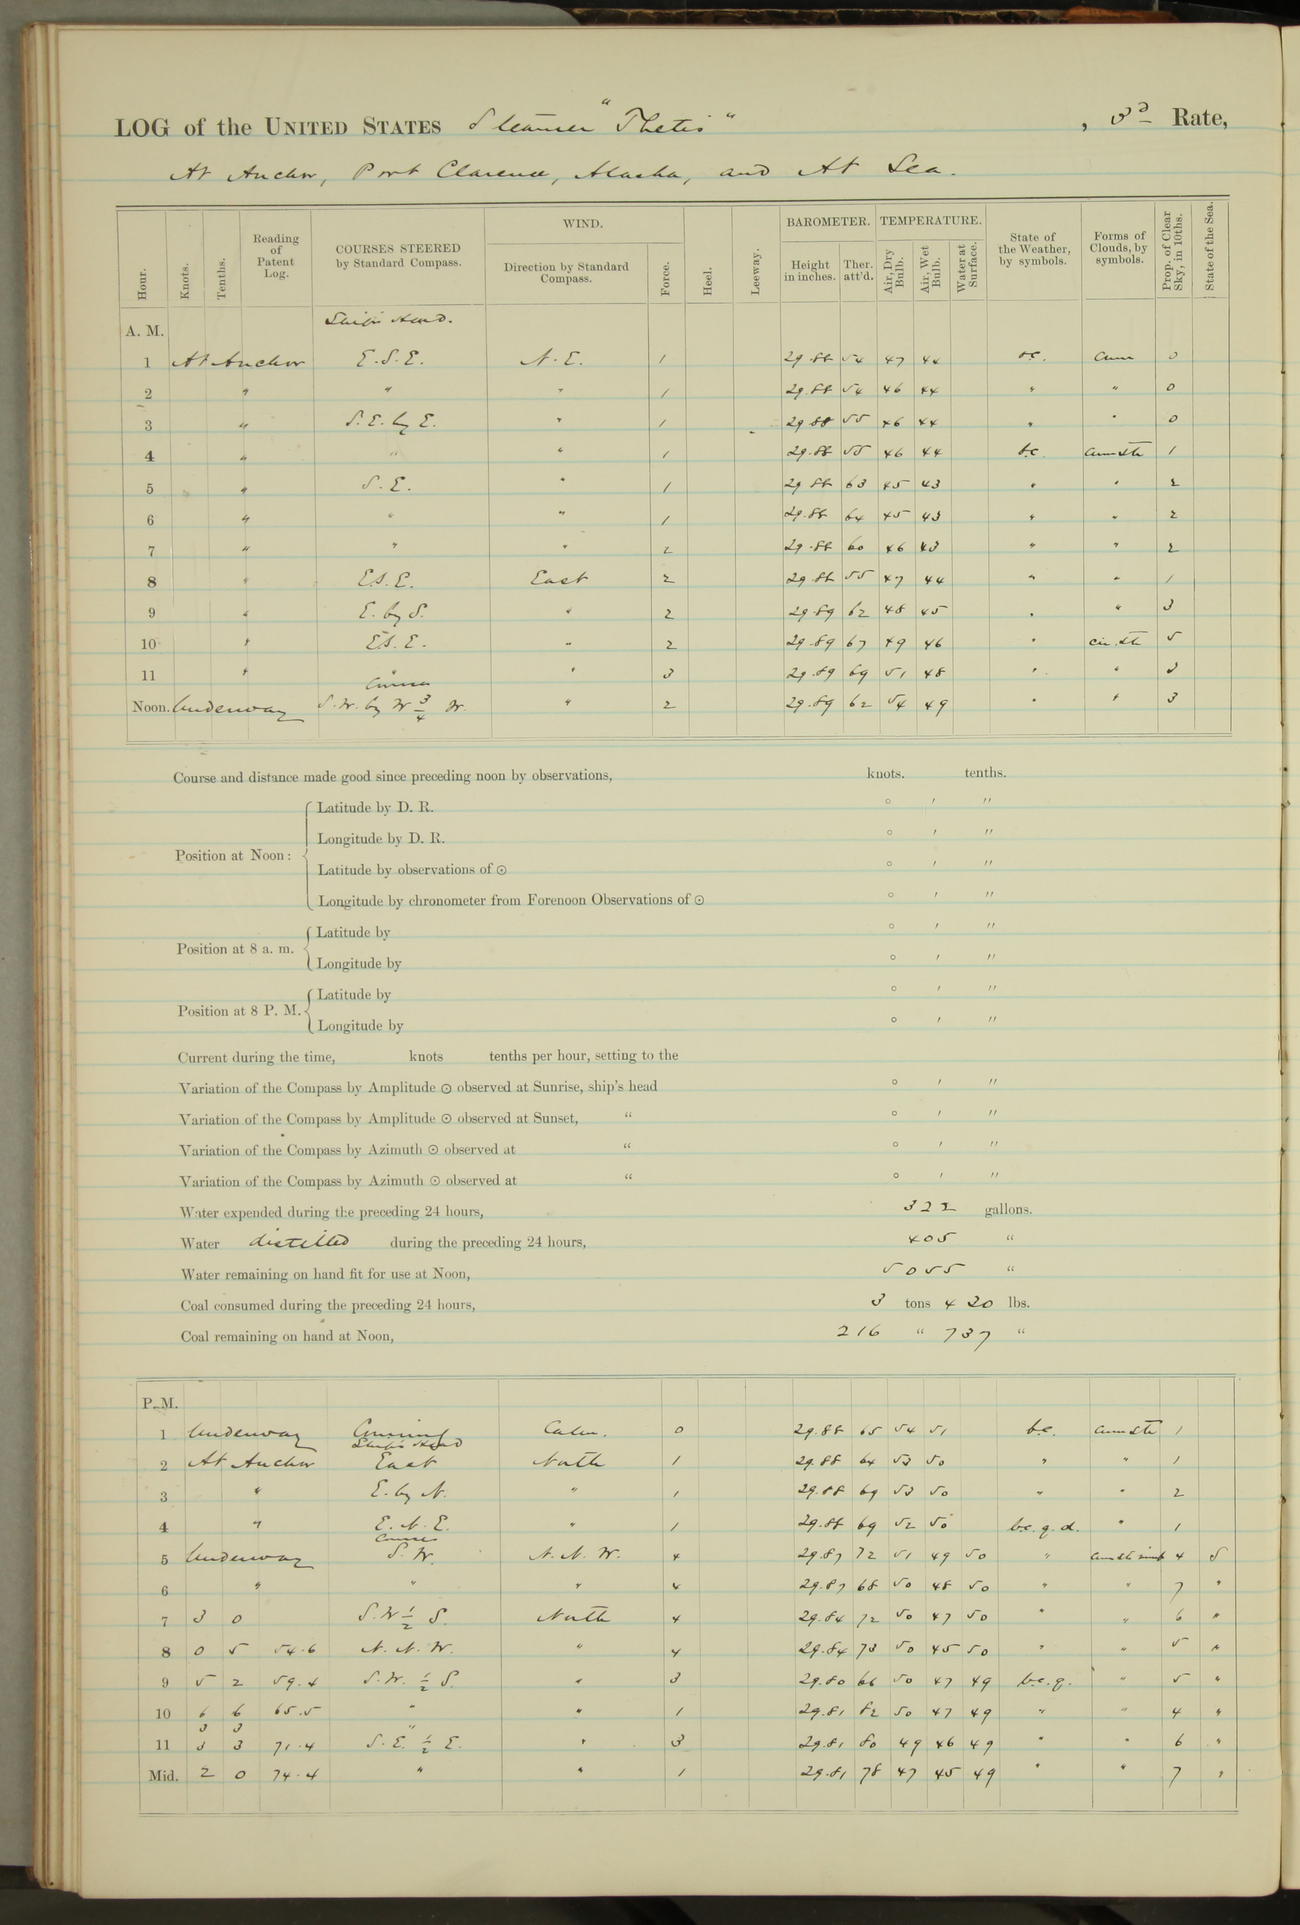 LOG of the UNITED STATES Steamer "Thetis", 3d Rate,
At Anchor, Port Clarence, Alaska, and At Sea.
Hour. Knots. Tenths. Reading of Patent Log. COURSES STEERED by Standard Compass. WIND. Direction by Standard Compass. Force. Heel. Leeway. BAROMETER. Height in inches. Ther. att'd. TEMPERATURE. Air, Dry Bulb. Air, Wet Bulb. Water at Surface. State of the Weather, by symbols. Forms of Clouds, by symbols. Prop. of Clear Sky, in 10ths. State of the Sea.
A. M. Ship's Head.
1 At Anchor E.S.E. N.E. 1 29.88 54 47 44 o.c. Cum 0
2 " " " 1 29.88 54 46 44 " " 0
3 " S.E. by E. " 1 29.88 55 46 44 " " 0
4 " " " 1 29.88 55 46 44 b.c. cum str 1
5 " S.E. " 1 29.88 63 45 43 " " 2
6 " " " 1 29.88 64 45 43 " " 2
7 " " " 2 29.88 60 46 43 " " 2
8 " E.S.E. East 2 29.88 55 47 44 " " 1
9 " E. by S. " 2 29.89 62 48 45 " " 3
10 " E.S.E. " 2 29.89 67 49 46 " cir. str 5
11 " " " 3 29.89 69 51 48 " " 3
Course
Noon. Underway S.W. by W 3/4 W. " 2 29.89 62 54 49 " " 3
Course and distance made good since preceding noon by observations, knots. tenths.
Latitude by D. R. ° ′ ″
Longitude by D. R. ° ′ ″
Position at Noon:
Latitude by observations of ⊙ ° ′ ″
Longitude by chronometer from Forenoon Observations of ⊙ ° ′ ″
Position at 8 a. m. Latitude by ° ′ ″
Longitude by ° ′ ″
Position at 8 P. M. Latitude by ° ′ ″
Longitude by ° ′ ″
Current during the time, knots tenths per hour, setting to the
Variation of the Compass by Amplitude ⊙ observed at Sunrise, ship's head ° ′ ″
Variation of the Compass by Amplitude ⊙ observed at Sunset, " ° ′ ″
Variation of the Compass by Azimuth ⊙ observed at " ° ′ ″
Variation of the Compass by Azimuth ⊙ observed at " ° ′ ″
Water expended during the preceding 24 hours, 322 gallons.
Water distilled during the preceding 24 hours, 405 "
Water remaining on hand fit for use at Noon, 5055 "
Coal consumed during the preceding 24 hours, 3 tons 420 lbs.
Coal remaining on hand at Noon, 216 " 737 "
P. M.
1 Underway Calm. 0 29.88 65 54 51 b.c. cum str 1
Ship's Head
2 At Anchor East North 1 29.88 64 53 50 " " 1
3 " E. by N. " 1 29.88 69 53 50 " " 2
4 " E.N.E. " 1 29.88 69 52 50 b.c.q.d. " 1
Course
5 Underway S.W. N.N.W. 4 29.87 72 51 49 50 " cum str nimb 4 S
6 " " " 4 29.87 68 50 48 50 " " 7 "
7 3 0 S.W 1/2 S. North 4 29.84 72 50 47 50 " " 6 "
8 0 5 54.6 N.N.W. " 4 29.84 73 50 45 50 " " 5 "
9 5 2 59.4 S.W. 1/2 S. " 3 29.80 66 50 47 49 b.c.q. " 5 "
10 6 6 65.5 " " 1 29.81 82 50 47 49 " " 4 "
3 3 "
11 3 3 71.4 S.E. 1/2 E. " 3 29.81 80 49 46 49 " " 6 "
Mid. 2 0 74.4 " " 1 29.81 78 47 45 49 " " 7 "